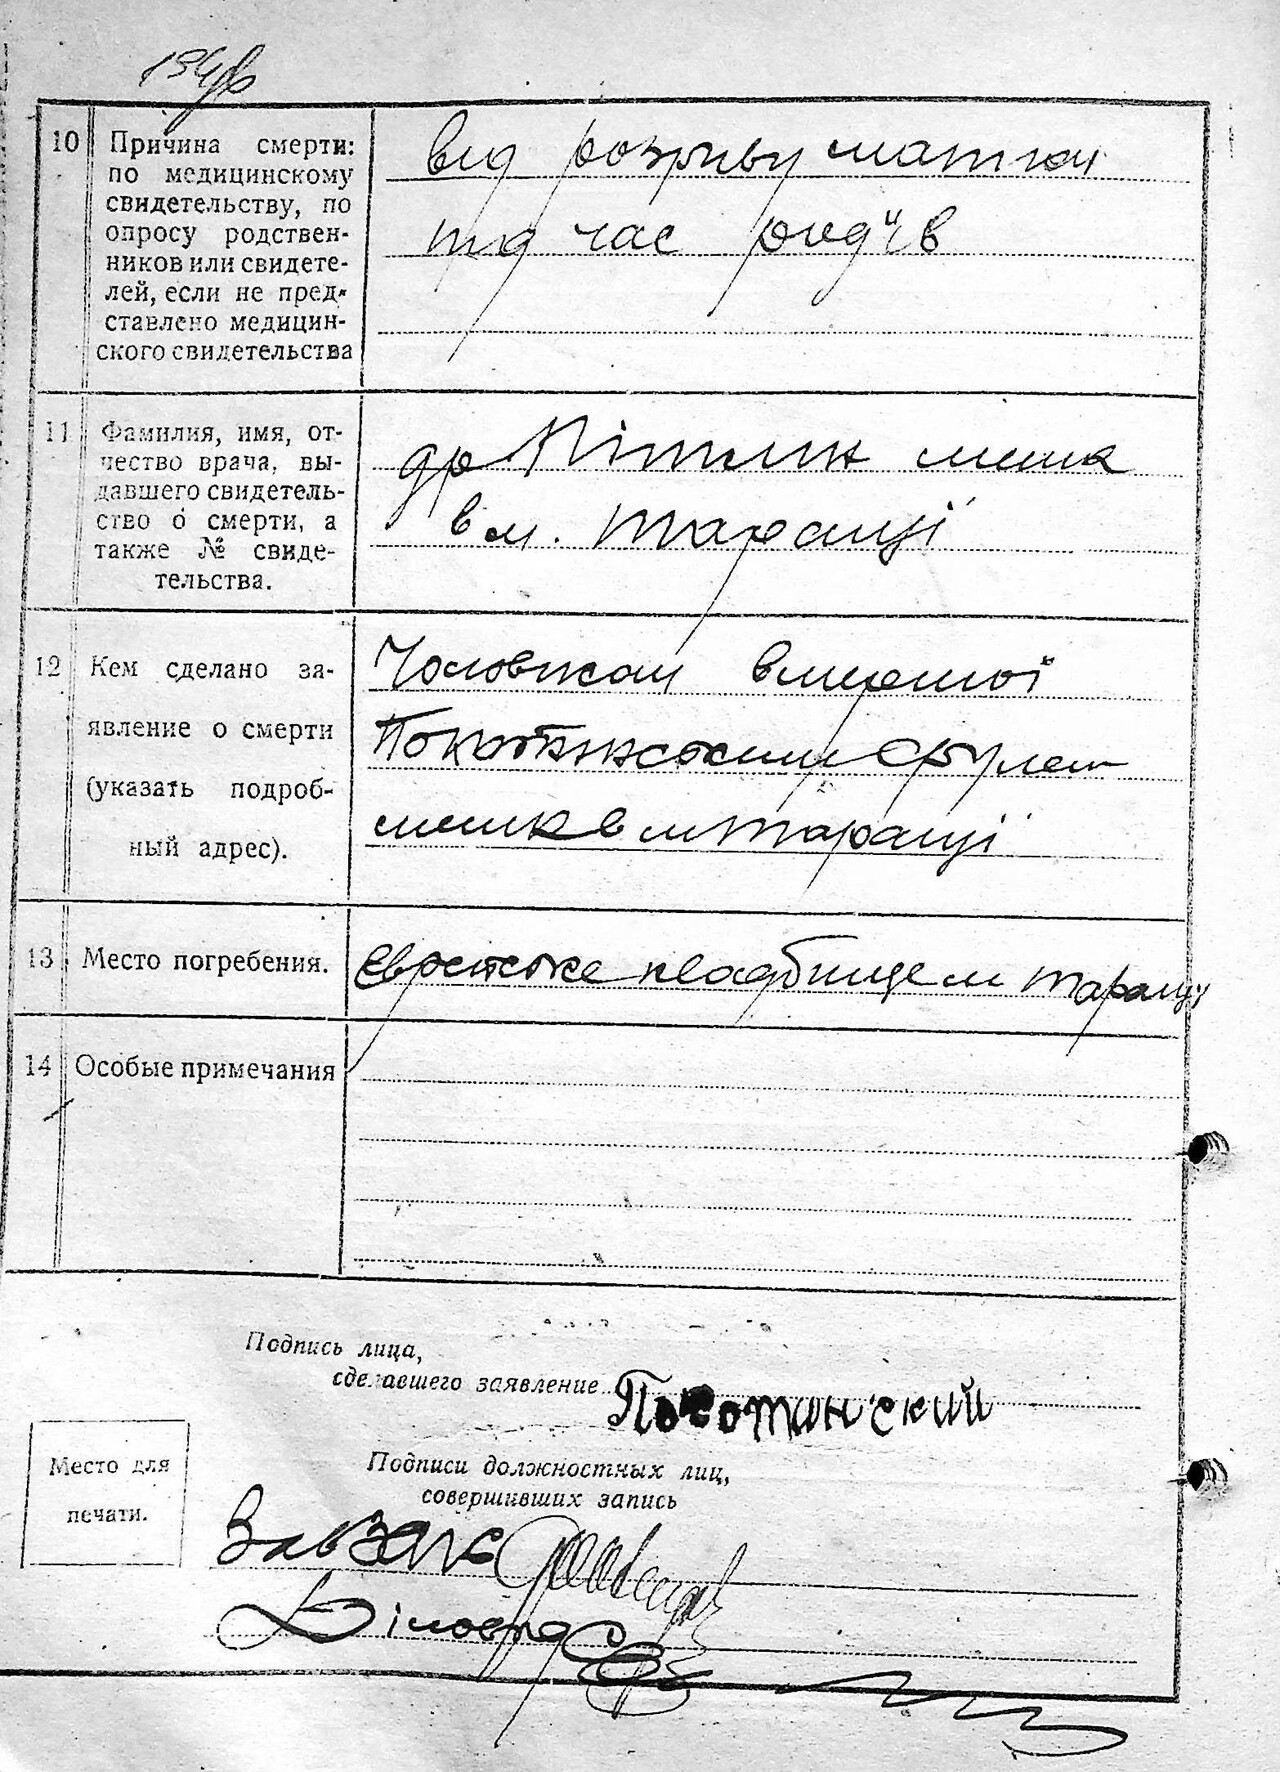 10 Причина смерти:
по медицинскому
свидетельству, по
опросу родствен-
ников или свидете-
лей, если не пред-
ставлено медицин-
ского свидетельства
від розриву матки
під час родів
11 Фамилия, имя, от-
чество врача, вы-
давшего свидетель-
ство о смерти, а
также № свиде-
тельства.
др мешк
в м. Таращі
12 Кем сделано за-
явление о смерти
(указать подроб-
ный адрес).
Чоловіком вмершої
мешк в м Таращі
13 Место погребения.
Єврейське кладбище м Таращу
14 Особые примечания
Подпись лица,
сделавшего заявление Покотинский
Место для
печати.
Подписи должностных лиц,
совершивших запись
Зав ЗАГС
Діловод